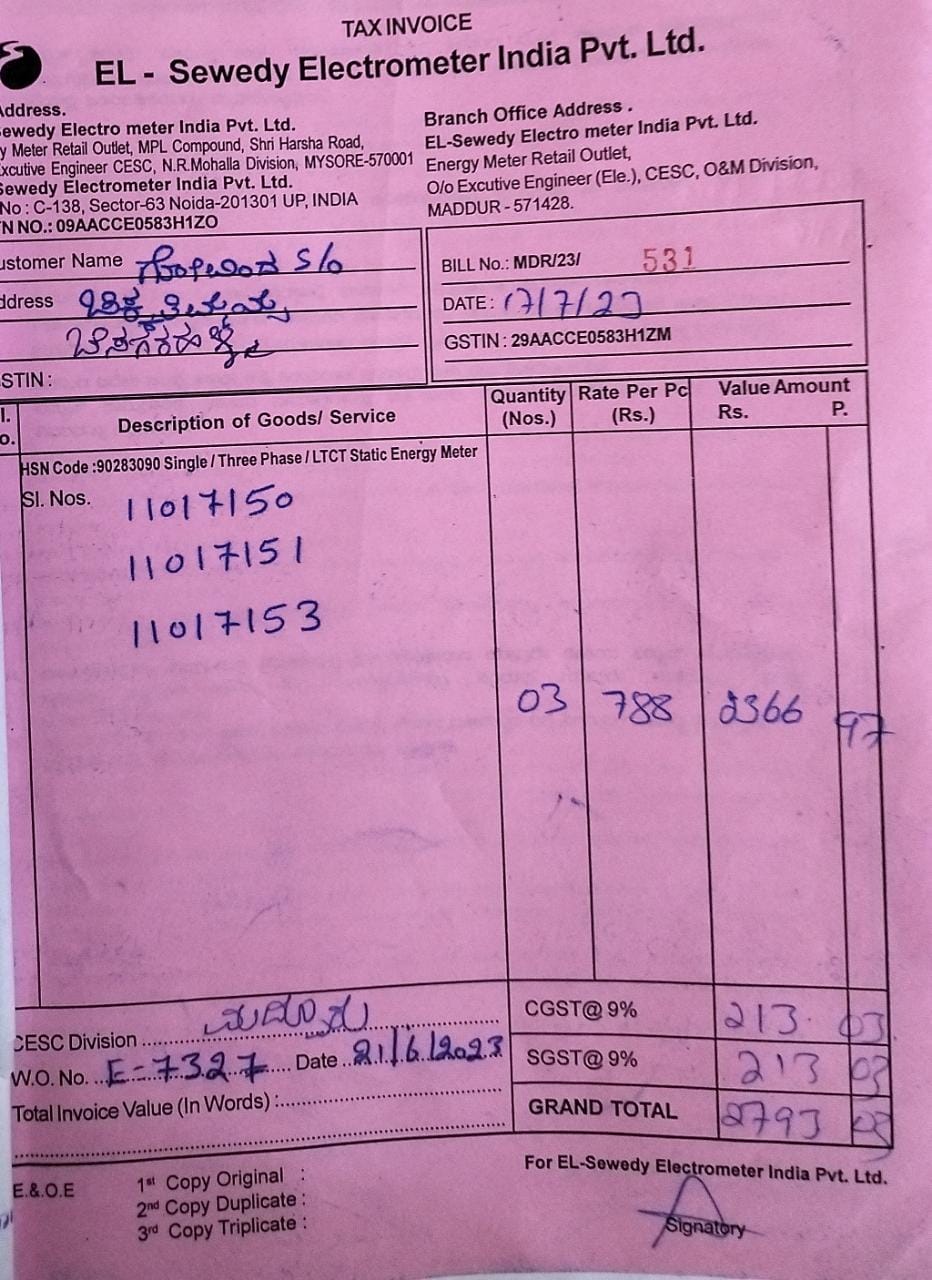 TAX INVOICE
EL - Sewedy Electrometer India Pvt. Ltd.
Address.
Sewedy Electro meter India Pvt. Ltd.
y Meter Retail Outlet, MPL Compound, Shri Harsha Road,
xcutive Engineer CESC, N.R.Mohalla Division, MYSORE-570001
Sewedy Electrometer India Pvt. Ltd.
No : C-138, Sector-63 Noida-201301 UP, INDIA
N NO.: 09AACCE0583H1ZO
Branch Office Address .
EL-Sewedy Electro meter India Pvt. Ltd.
Energy Meter Retail Outlet,
O/o Excutive Engineer (Ele.), CESC, O&M Division,
MADDUR - 571428.
ustomer Name S/o
ddress
STIN :
BILL No.: MDR/23/ 531
DATE : 17/7/23
GSTIN : 29AACCE0583H1ZM
l. o. Description of Goods/ Service Quantity (Nos.) Rate Per Pc (Rs.) Value Amount Rs. P.
HSN Code :90283090 Single / Three Phase / LTCT Static Energy Meter
Sl. Nos. 11017150
11017151
11017153
03 788 2366 97
CESC Division ಮದ್ದೂರು
W.O. No. E-7327 Date 21/6/2023
Total Invoice Value (In Words) :
CGST@ 9% 213 03
SGST@ 9% 213 03
GRAND TOTAL 2793
E.&.O.E
1st Copy Original :
2nd Copy Duplicate :
3rd Copy Triplicate :
For EL-Sewedy Electrometer India Pvt. Ltd.
Signatory